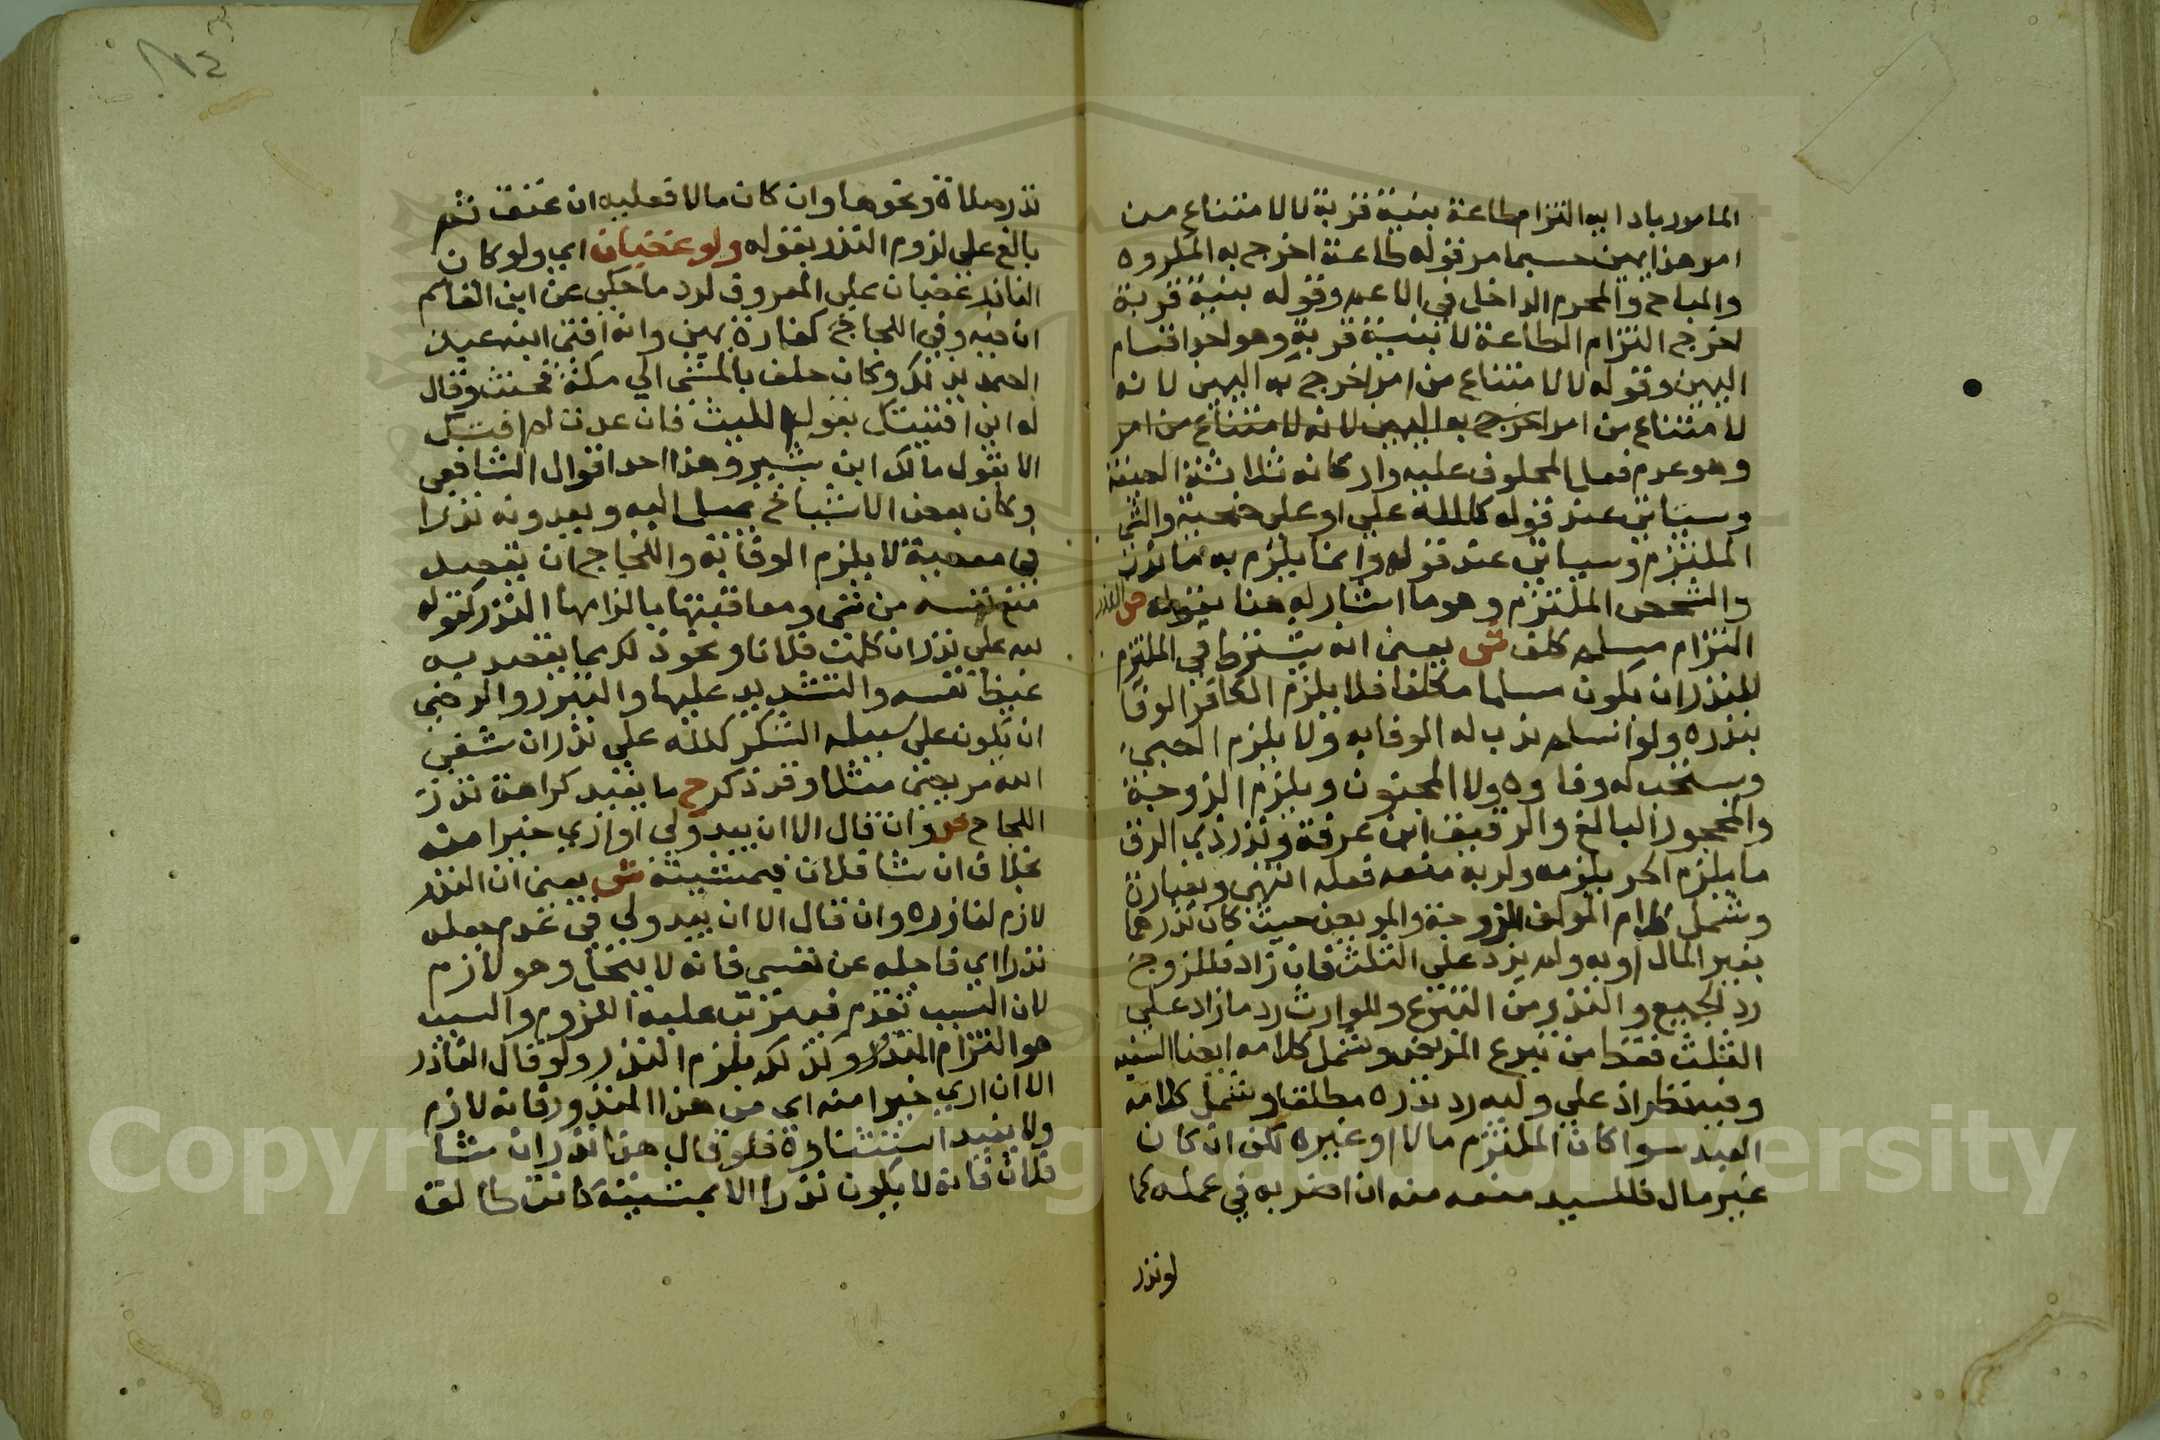 المامور باد ايه التزام طاعة بنية قربة لا لامتناع من
امر هذا يمين حسبما مر قوله طاعة اخرج به المكروه
والمباح والمحرم الداخل في الاعم وقوله بنية قربة
اخرج التزام الطاعة لا بنية قربة وهو احد اقسام
اليمين وقوله لا لامتناع من امر اخرج به اليمين لانه
لامتناع من امر اخرج به اليمين لانه لامتناع من امر
وهو عدم فعل المحلوف عليه واركانه ثلاثة الصيغة
وسياتي عند قوله كالله علي او علي ضحية والشي
الملتزم وسياتي عند قوله وانما يلزم به ما ندب
والشخص الملتزم وهو ما اشار له هنا بقوله ص النذر
التزام مسلم كلف ش يعني انه يشترط في الملتزم
للنذر ان يكون مسلما مكلفا فلا يلزم الكافر الوفا
بنذره ولو اسلم ندب له الوفا به ولا يلزم الصبي
ويستحب له وفاوه ولا المجنون ويلزم الزوجة
والمحجور البالغ والرقيق ابن عرفة ونذر ذي الرق
ما يلزم الحر يلزمه ولربه منعه فعله انتهى وبعبارة
وشمل كلام المولف الزوجة والمريض حيث كان نذرهما
بغير المال او به ولم يزد على الثلث فان زاد فللزوج
رد الجميع والنذر من التبرع وللوارث رد ما زاد على
الثلث فقط من تبرع المريض وشمل كلامه ايضا السفيه
وفيه نظر اذ على وليه رد نذره مطلقا وشمل كلامه
العبد سوا كان الملتزم مالا او غيره لكن ان كان
غير مال فللسيد منعه منه ان اضر به في عمله كما
لو نذر
نذر صلاة ونحوها وان كان مالا فعليه ان عتق ثم
بالغ على لزوم النذر بقوله ولو غضبان اي ولو كان
الناذر غضبان على المعروف لرد ما حكي عن ابن القاسم
ان فيه وفي اللجاج كفارة يمين وانه افتى ابنه عبد
الصمد بذلك وكان حلف بالمشي الي مكة فحنث وقال
له اني افتيتك بقول الليث فان عدت لم افتك
الا بقول مالك ابن بشير وهذا احد اقوال الشافعي
وكان بعض الاشياخ يميل اليه ويعدونه نذرا
في معصية لا يلزم الوفا به واللجاج ان يقصد
منع نفسه من شي ومعاقبتها بالزامها النذر كقوله
لله علي نذر ان كلمت فلانا ونحو ذلك مما يقصد به
غيظ نفسه والتشديد عليها والتبرر والرضي
ان يكون على سبيل الشكر كلله علي نذر ان شفى
الله مريضي مثلا وقد ذكر ح ما يفيد كراهة نذر
اللجاج ص وان قال الا ان يبدو لي او ارى خيرا منه
بخلاف ان شا فلان فبمشيئته ش يعني ان النذر
لازم لناذره وان قال الا ان يبدو لي في عدم جعله
نذرا اي فاحله عن نفسي فانه لا ينحل وهو لازم
لان السبب تقدم فيترتب عليه اللزوم والسبب
هو التزام المنذور وكذلك يلزم النذر ولو قال الناذر
الا ان ارى خيرا منه اي من هذا المنذور فانه لازم
ولا يفيد استثناوه فلو قال هذا نذر ان شا
فلان فانه لا يكون نذرا الا بمشيئة كانت طالق